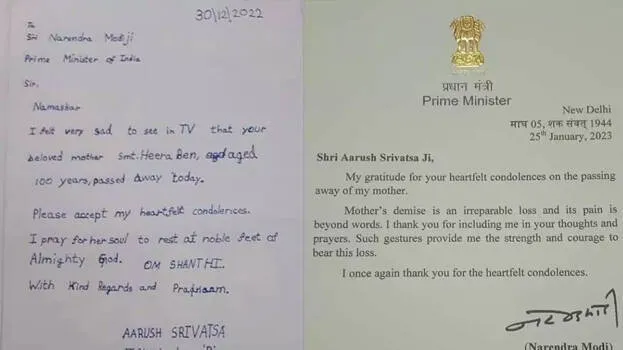 30/12/2022
To
Sri Narendra Modiji
Prime Minister of India
Sir.
Namaskar
I felt very sad to see in TV that your
beloved mother Smt. Heera Ben, aged
100 years, passed away today.
Please accept my heartfelt condolences.
I pray for her soul to rest at noble feet of
Almighty God. OM SHANTHI.
With Kind Regards and Pranaam.
AARUSH SRIVATSA
प्रधान मंत्री
Prime Minister
New Delhi
माघ 05, शक संवत् 1944
25th January, 2023
Shri Aarush Srivatsa Ji,
My gratitude for your heartfelt condolences on the passing
away of my mother.
Mother's demise is an irreparable loss and its pain is
beyond words. I thank you for including me in your thoughts and
prayers. Such gestures provide me the strength and courage to
bear this loss.
I once again thank you for the heartfelt condolences.
(Narendra Modi)